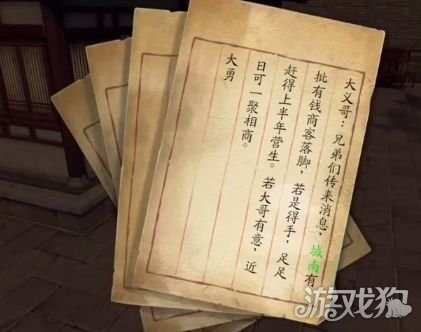 大义哥：兄弟们传来消息，城南有
批有钱商客落脚，若是得手，足足
赶得上半年营生。若大哥有意，近
日可一聚相商。
大勇
游戏狗